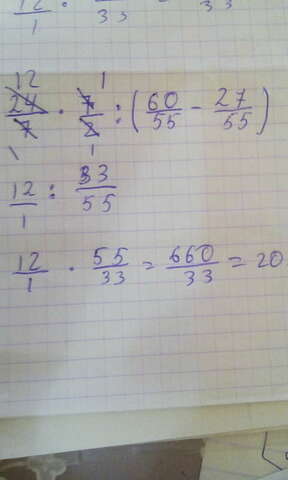 12/1 : /33 33
12 1
24/7 · 7/2 : (60/55 - 27/55)
1 1
12/1 : 33/55
12/1 · 55/33 = 660/33 = 20